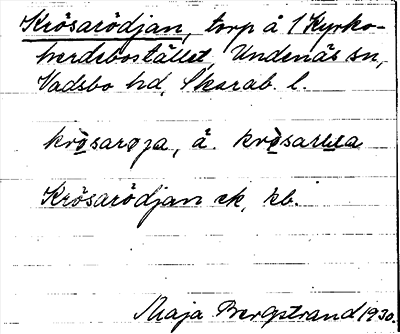 Krösarödjan, torp å 1 Kyrko-
herdebostället, Undenäs sn,
Vadsbo hd, Skarab. l.
krösarøja, å.
Krösarödjan ek, kb.
Maja Bergstrand 1930.